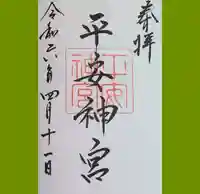 奉拝
平安神宮
令和六年四月十一日